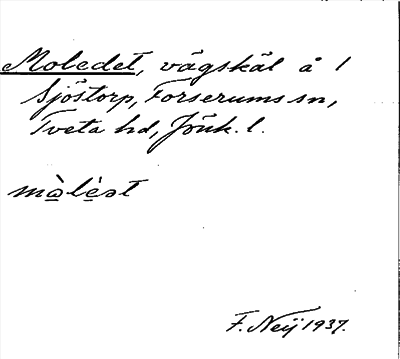 Moledet, vägskäl å 1
Sjöstorp, Forserums sn,
Tveta hd, Jönk. l.
mò̱lè̱ət
F. Neij 1937.